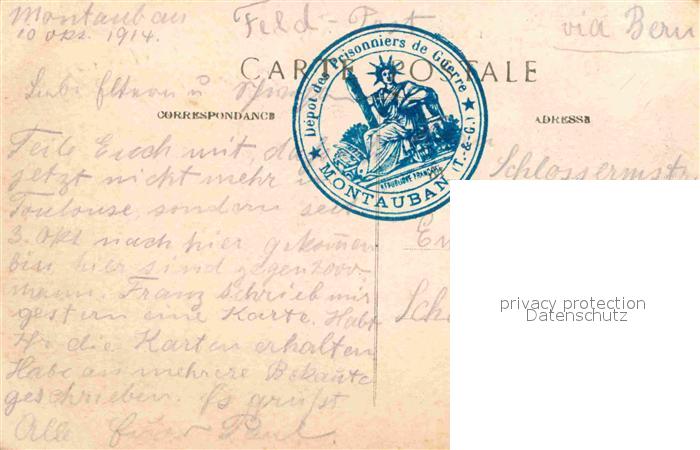 Montauban
10 Okt. 1914.
Feld-Post
via Bern
CARTE POSTALE
Dépot des Prisonniers de Guerre
RÉPUBLIQUE FRANÇAISE
MONTAUBAN (T.-&-G.)
CORRESPONDANCE
ADRESSE
Liebe Eltern u.
Teile Euch mit, daß
jetzt nicht mehr
Toulouse, sondern seit
3. Okt nach hier gekommen
bin hier sind gegen 2000
mann. Franz schrieb mir
gestern eine Karte. Habt
Ihr die Karten erhalten
Habe an mehrere Bekannte
geschrieben. Es grüßt
Alle Euer Paul.
Schlossermstr
privacy protection
Datenschutz